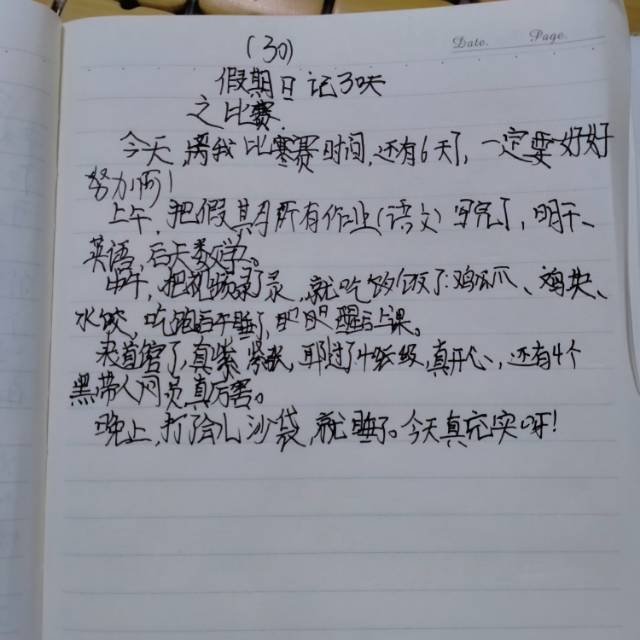 (30)
Date. Page.
假期日记30天
之比赛
今天,离我比赛时间,还有6天了,一定要好好
努力啊!
上午,把假期所有作业(语文)写完了,明天、
英语,后天数学。
中午,把视频录了录,就吃饭了:鸡爪、鸡块、
水饺,吃饱后午睡了,醒后上课。
来道馆了,真紧张,耶过了级,真开心,还有4个
黑带人员真厉害。
晚上,打会儿沙袋,就睡了。今天真充实呀!